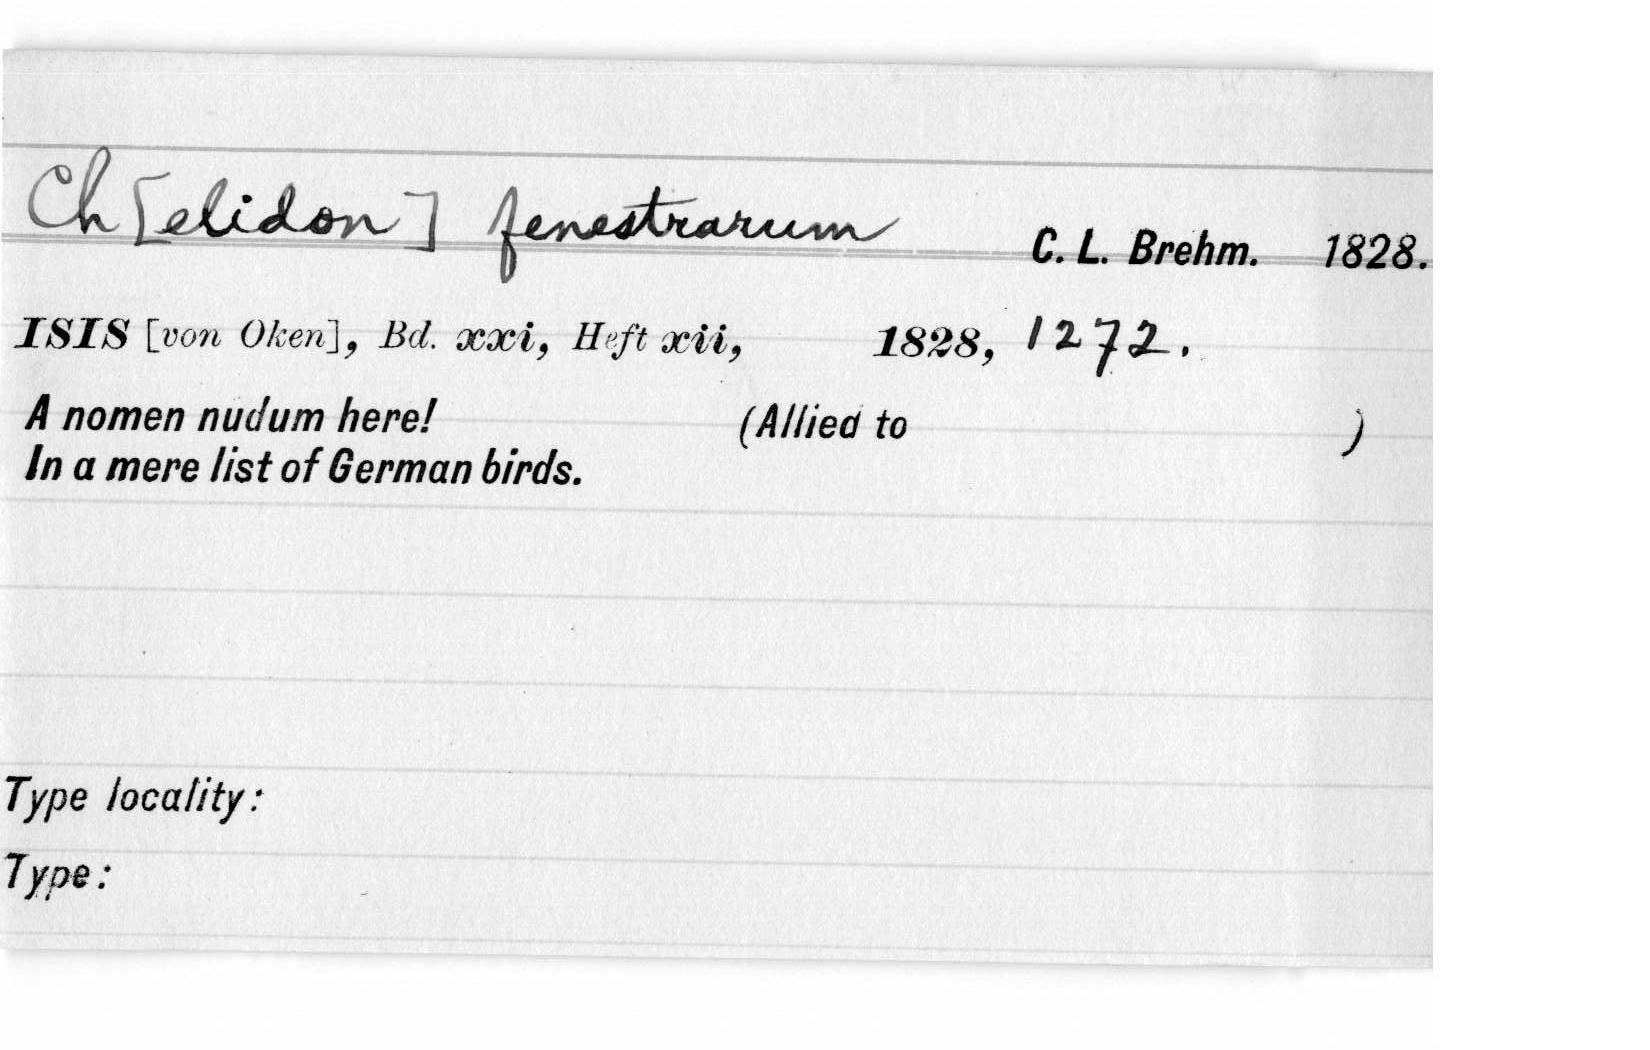 Ch[elidon] fenestrarum C. L. Brehm. 1828.
ISIS [von Oken], Bd. xxi, Heft xii, 1828, 1272.
A nomen nudum here! (Allied to )
In a mere list of German birds.
Type locality:
Type: